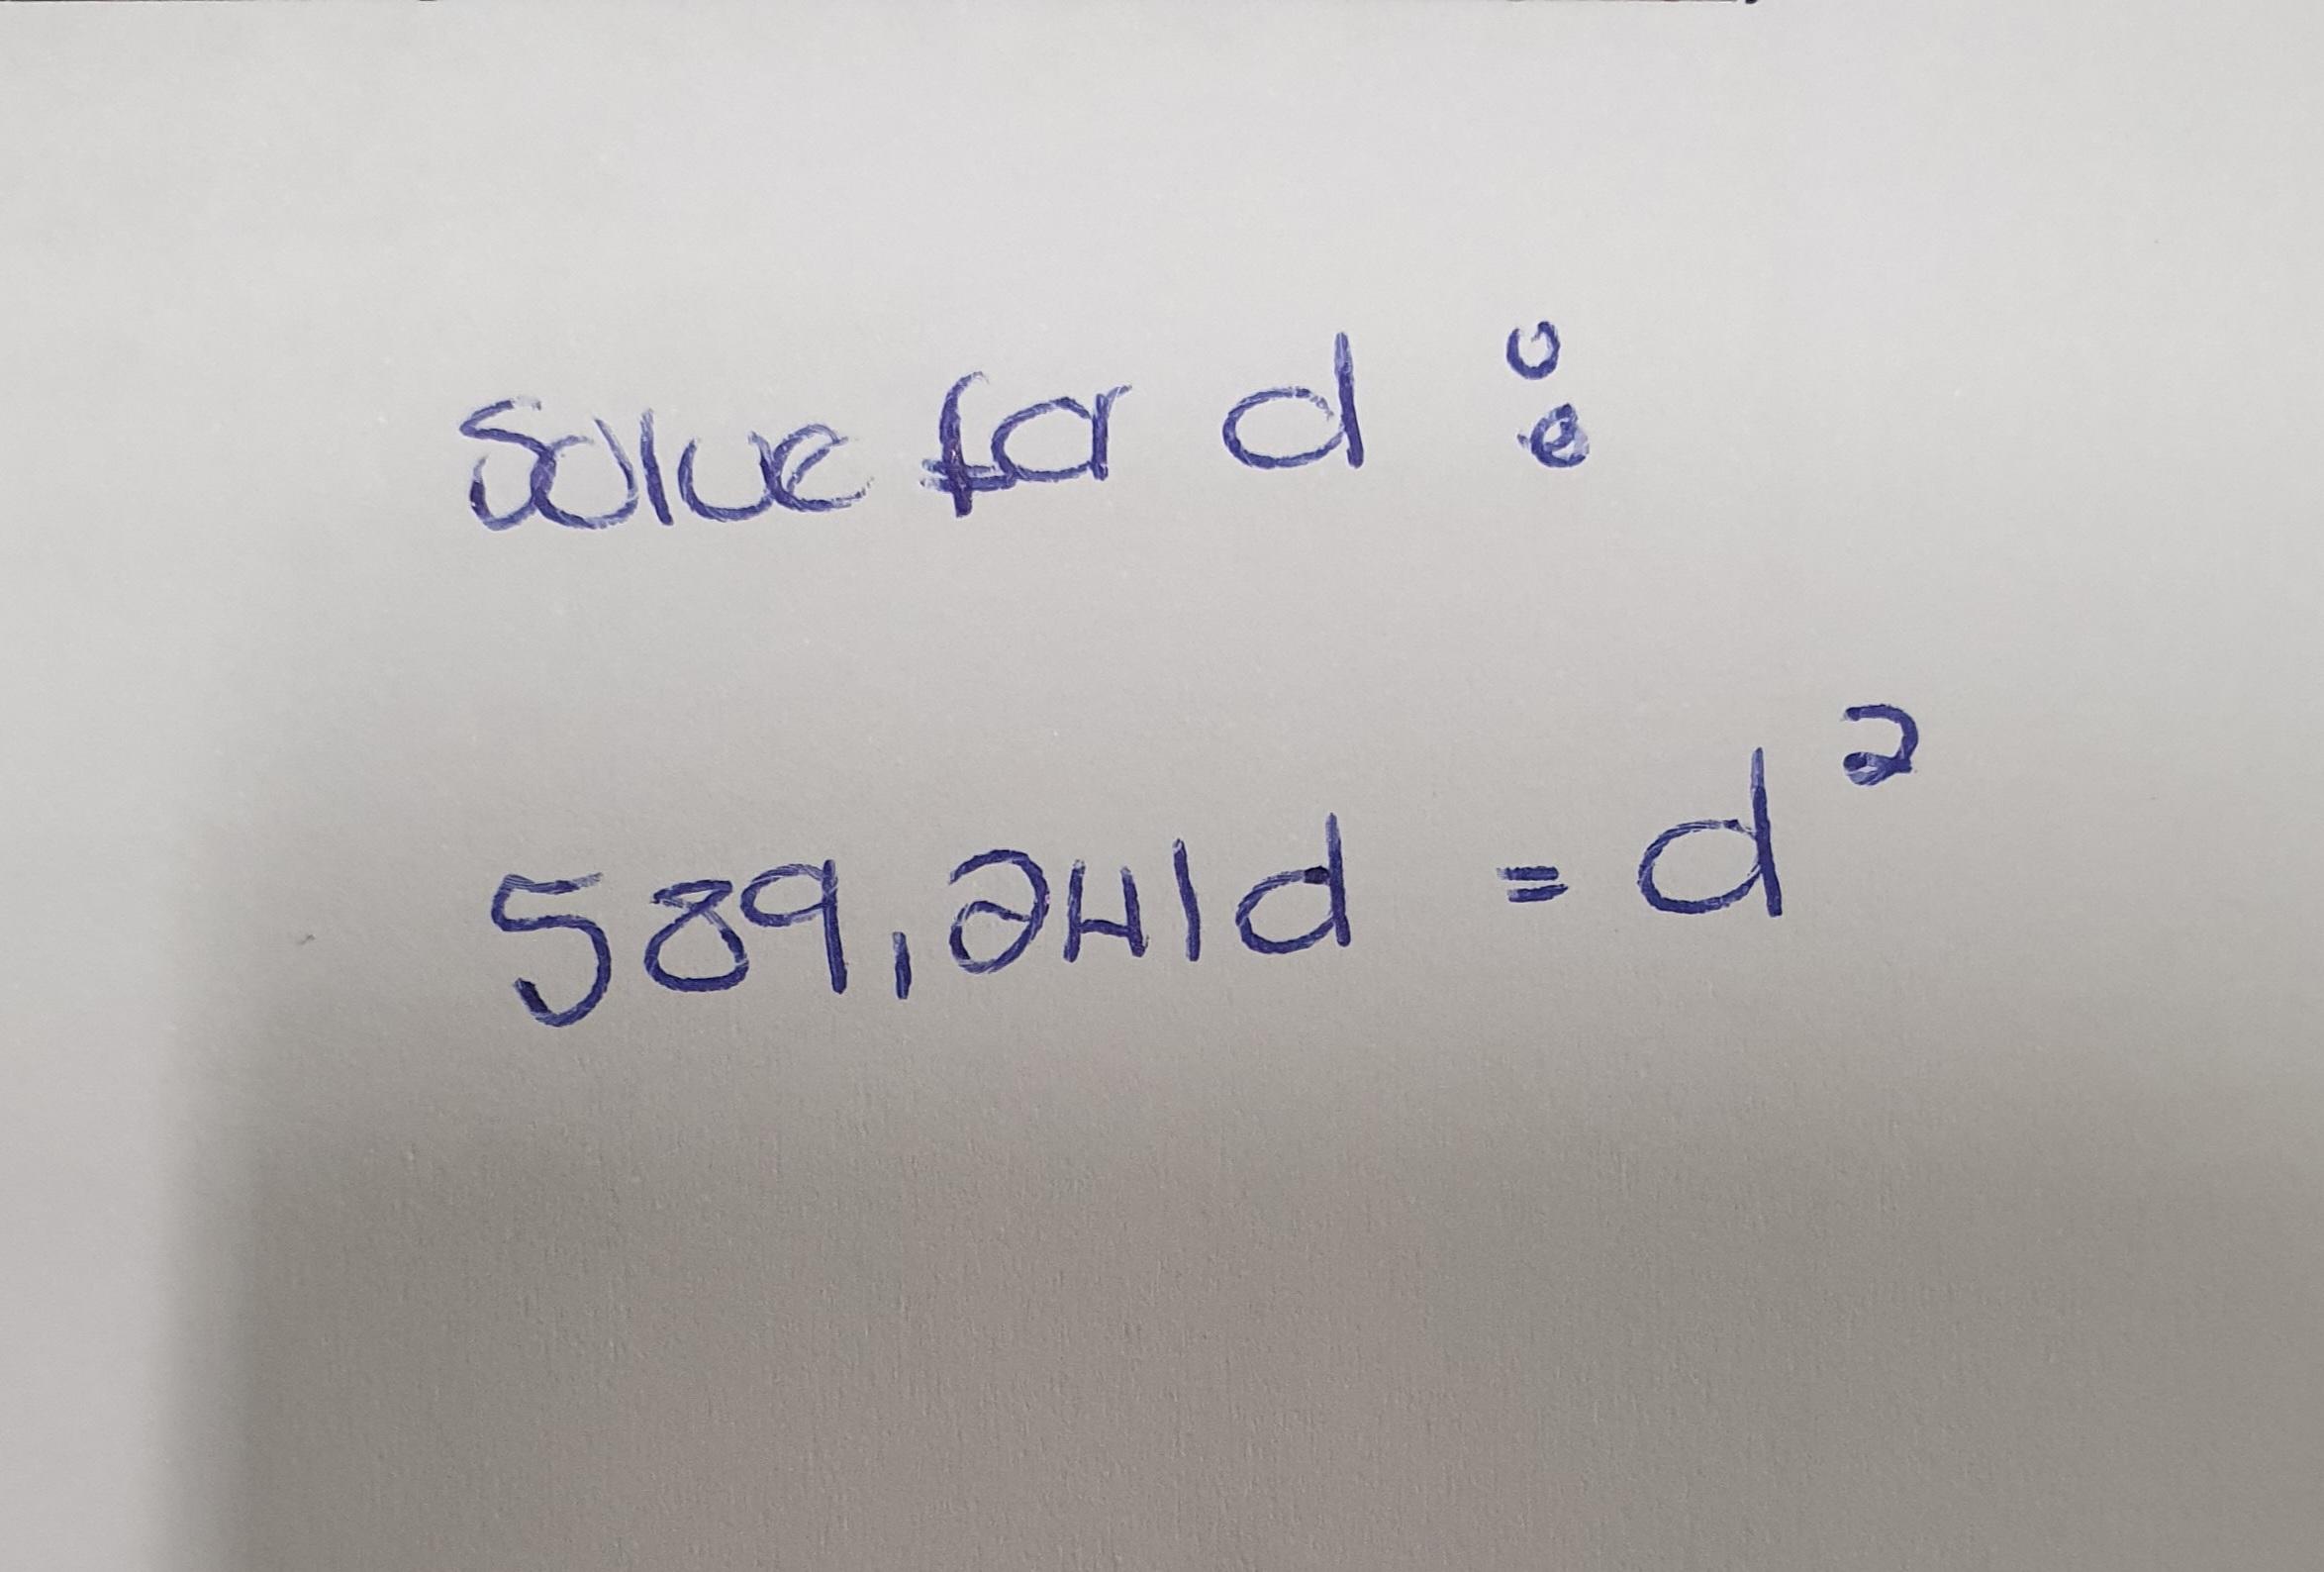 Solve for d :
589,241d = d²